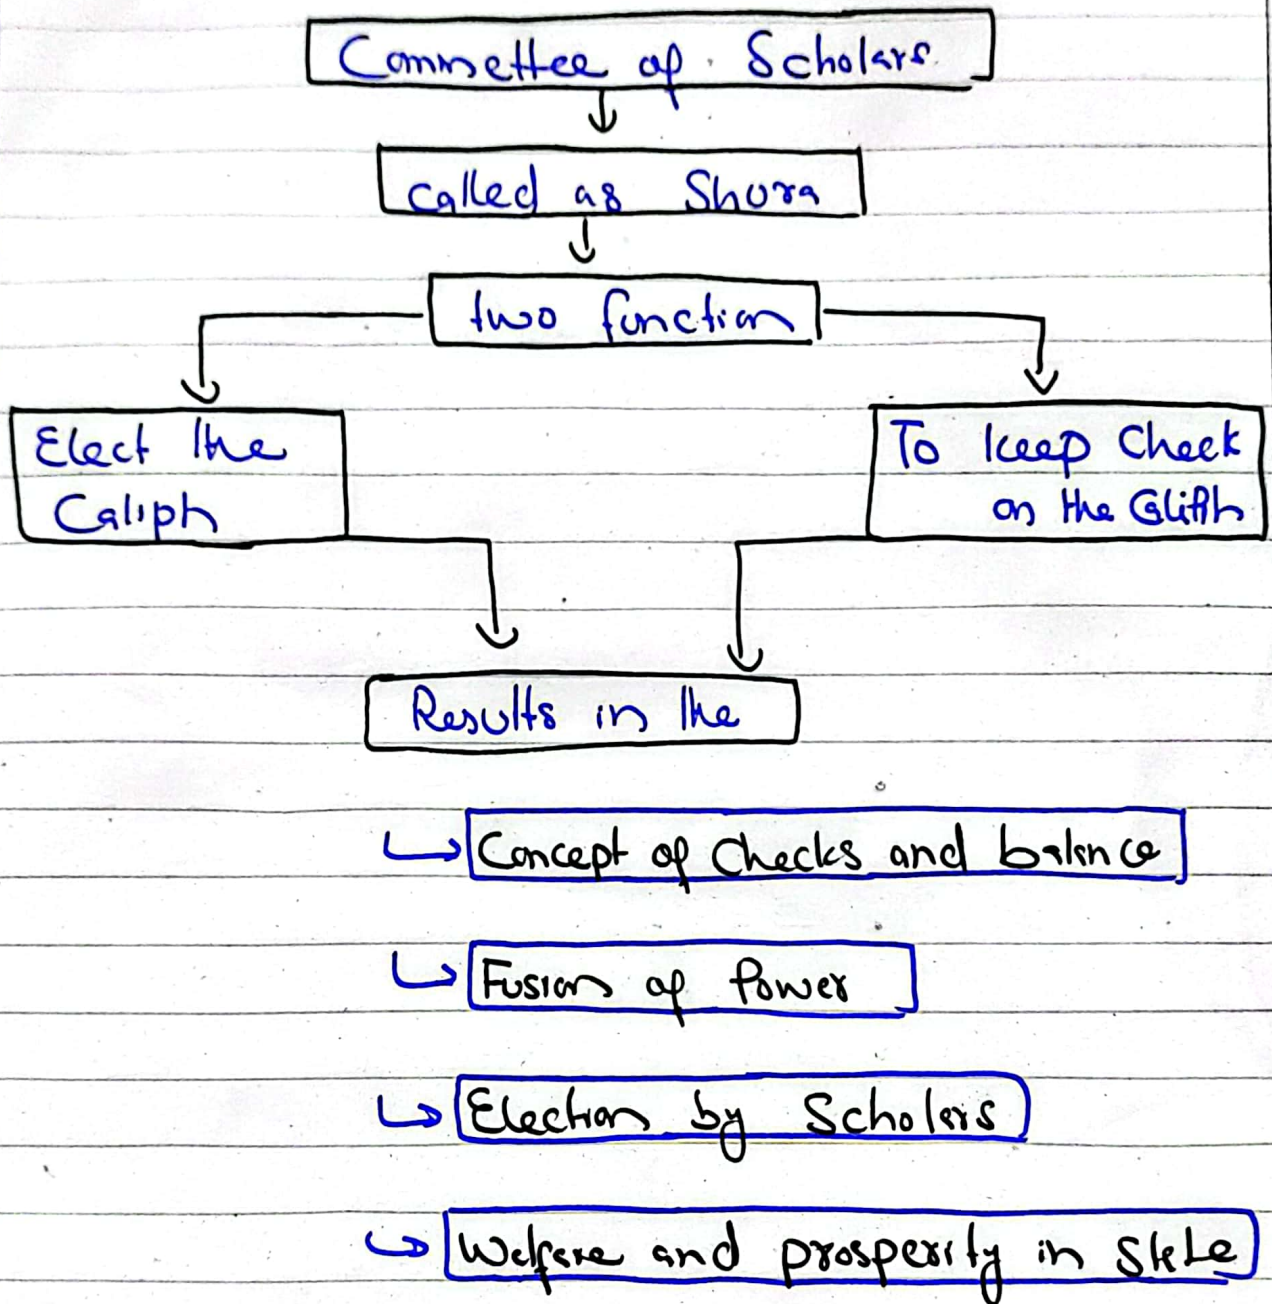 Commettee of Scholars
called as Shura
two function
Elect the
Caliph
To keep Check
on the Caliph
Results in the
Concept of Checks and balance
Fusion of Power
Election by Scholars
Welfare and prosperity in State